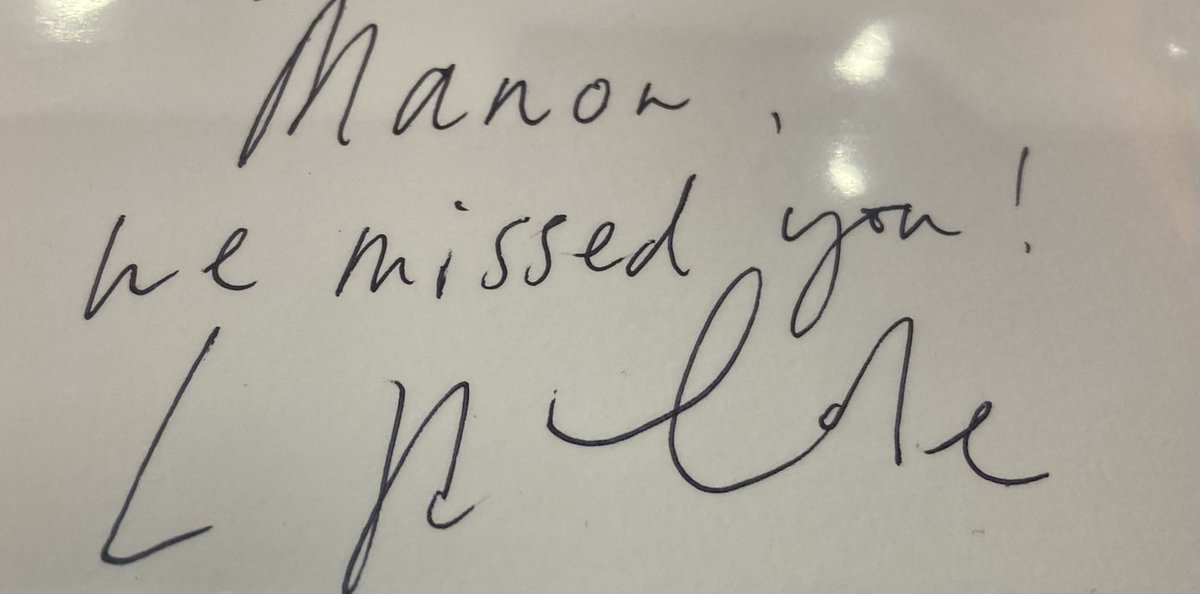 Manon,
we missed you!